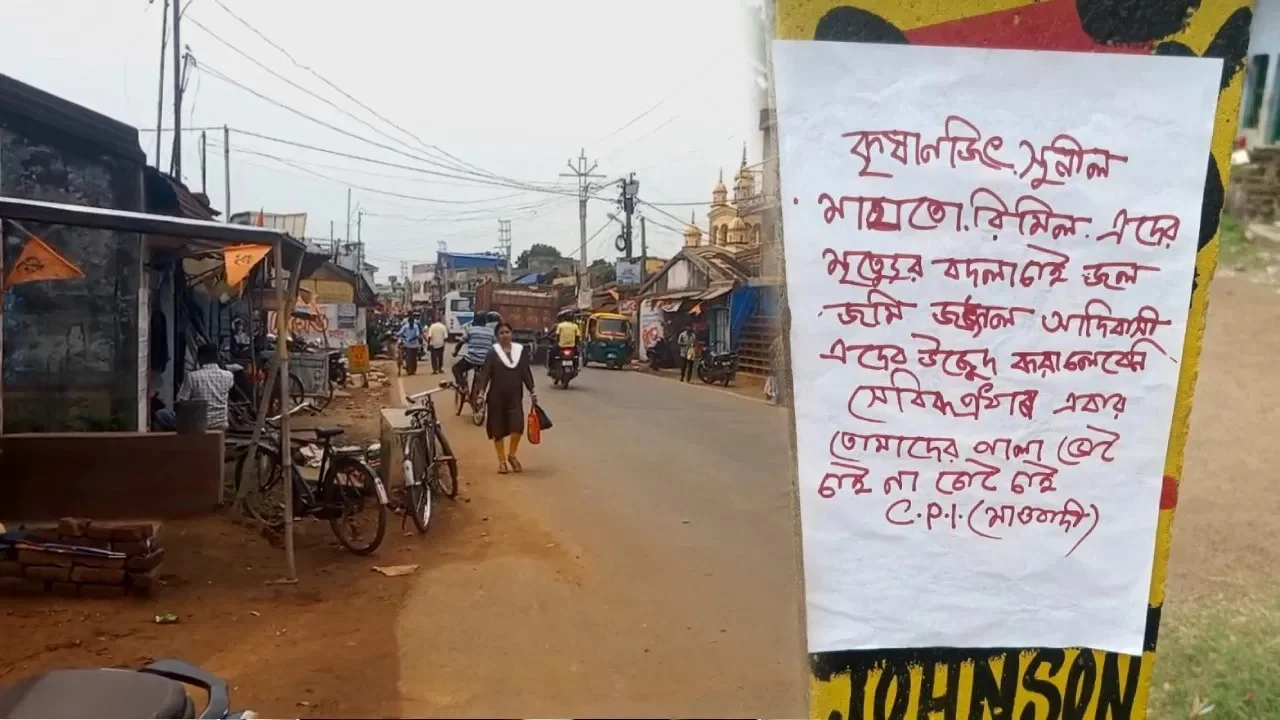 কৃষাণজিৎ. সুনীল
মাহাতো. রিমিল. এদের
মৃত্যুর বদলা চাই জল
জমি জঙ্গল আদিবাসী
এদের উচ্ছেদ করা
এবার
তোমাদের পালা ভোট
চাই না ভোট চাই
C.P.I. (মাওবাদী)
JOHNSON